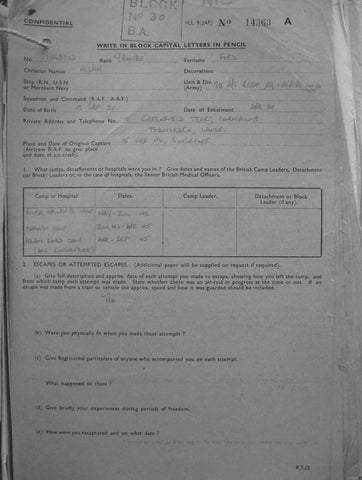 BLOCK
Nº 30
B.A.
CONFIDENTIAL
M.I. 9/JAP/ Nº 14363 A
WRITE IN BLOCK CAPITAL LETTERS IN PENCIL
No. Rank L/BDR Surname
Christian Names Decorations
Ship (R.N., U.S.N. or Merchant Navy
Unit & Div. (Army)
Squadron and Command (R.A.F., A.A.F.)
Date of Birth 15 SEP 21 Date of Enlistment APR 39
Private Address and Telephone No. GREENFIELD TERR, CORNHOLME
TODMORDEN, LANCS.
Place and Date of Original Capture 15 FEB 42, SINGAPORE
(Aircrew R.A.F. to give place
and date of a/c crash).
1. What camps, detachments or hospitals were you in ? Give dates and names of the British Camp Leaders, Detachment
(or Block) Leaders or, in the case of hospitals, the Senior British Medical Officers.
Camp or Hospital. Dates. Camp Leader. Detachment or Block Leader (if any).
RIVER VALLEY CAMP
CHANGI CAMP
CAMP
(ALL SINGAPORE)
2. ESCAPES OR ATTEMPTED ESCAPES. (Additional paper will be supplied on request if required).
(a) Give full description and approx. date of each attempt you made to escape, showing how you left the camp, and
from which camp each attempt was made. State whether there was an air-raid in progress at the time or not. If an
escape was made from a train or vehicle the approx. speed and how it was guarded should be included.
No
(b) Were you physically fit when you made these attempts ?
(c) Give Regimental particulars of anyone who accompanied you on each attempt.
What happened to them ?
(d) Give briefly your experiences during periods of freedom.
(e) How were you recaptured and on what date ?
P.T.O.